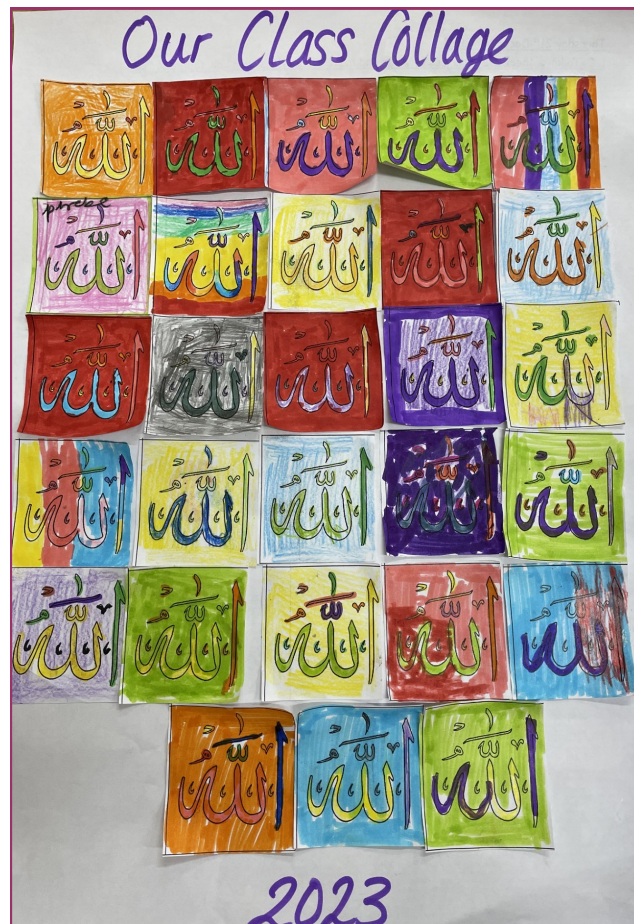 Our Class Collage
الله الله الله الله الله
phoebe
الله الله الله الله الله
الله الله الله الله الله
الله الله الله الله الله
الله الله الله الله الله
الله الله الله
2023